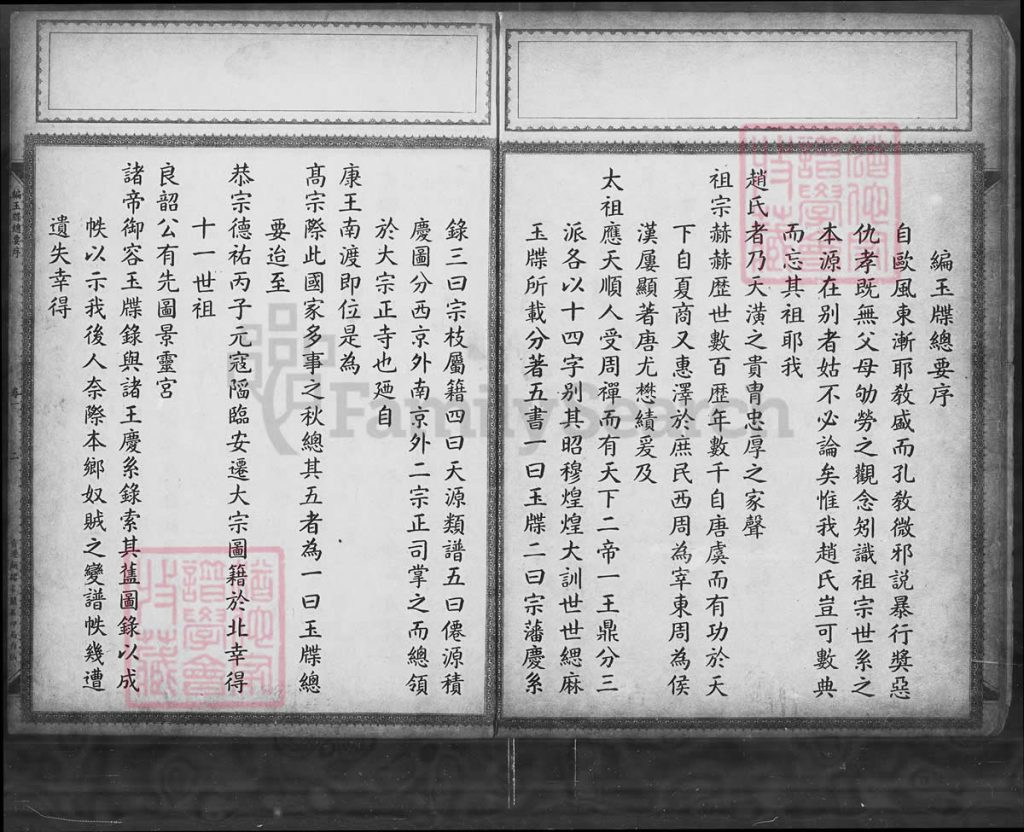 編玉牒總要序
自歐風東漸耶教盛而孔教微邪説暴行奬惡
仇孝既無父母劬勞之觀念矧識祖宗世系之
本源在别者姑不必論矣惟我趙氏豈可數典
而忘其祖耶我
趙氏者乃天潢之貴胄忠厚之家聲
祖宗赫赫歴世數百歴年數千自唐虞而有功於天
下自夏商又惠澤於庶民西周為宰東周為侯
漢屢顯著唐尤懋績爰及
太祖應天順人受周禪而有天下二帝一王鼎分三
派各以十四字别其昭穆煌煌大訓世世緦麻
玉牒所載分著五書一曰玉牒二曰宗藩慶系
錄三曰宗枝屬籍四曰天源類譜五曰僊源積
慶圖分西京外南京外二宗正司掌之而總領
於大宗正寺也廼自
康王南渡即位是為
髙宗際此國家多事之秋總其五者為一曰玉牒總
要迨至
恭宗德祐丙子元寇陷臨安遷大宗圖籍於北幸得
十一世祖
良韶公有先圖景靈宮
諸帝御容玉牒錄與諸王慶系錄索其舊圖錄以成
帙以示我後人奈際本鄉奴賊之變譜帙幾遭
遺失幸得
編玉牒總要序
卷一
二
FamilySearch